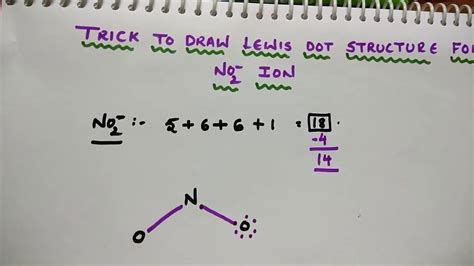 TRICK TO DRAW LEWIS DOT STRUCTURE FO
NO₂⁻ ION
NO₂⁻ :- 5+6+6+1 = 18.
-4
14
N
O O